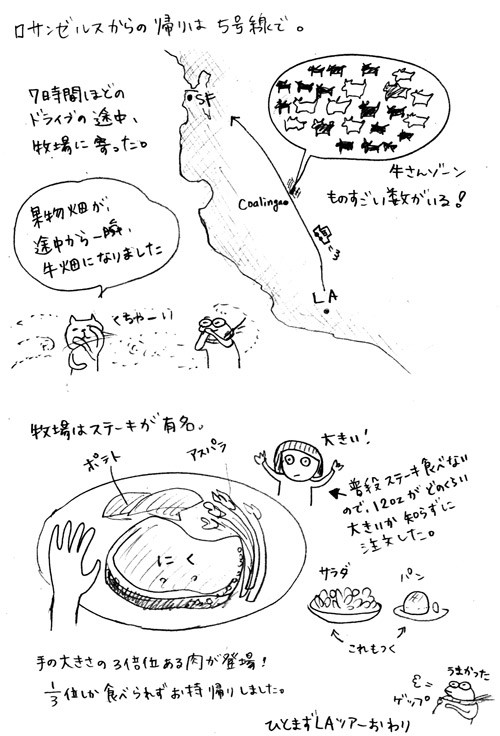 ロサンゼルスからの帰りは5号線で。
7時間ほどの
ドライブの途中、
牧場に寄った。
SF
Coalinga
LA
牛さんゾーン
ものすごい数がいる!
果物畑が、
途中から一瞬、
牛畑になりました
くちゃーい
牧場はステーキが有名。
ポテト
アスパラ
にく
大きい!
普段ステーキ食べない
ので、12ozがどのくらい
大きいか知らずに
注文した。
サラダ
パン
これもつく
手の大きさの3倍位ある肉が登場!
1/3位しか食べられずお持帰りしました。
うまかった
ゲップ
ひとまずLAツアーおわり